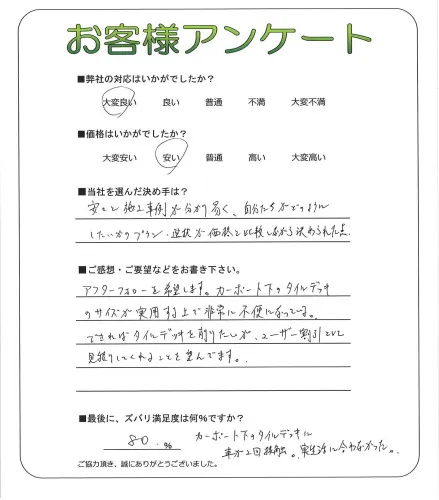 お客様アンケート
■弊社の対応はいかがでしたか？
大変良い　良い　普通　不満　大変不満
■価格はいかがでしたか？
大変安い　安い　普通　高い　大変高い
■当社を選んだ決め手は？
安さと施工事例が分かり易く、自分たちがどのように
したいかのプラン・選択が価格と比較しながら決められた点
■ご感想・ご要望などをお書き下さい。
アフターフォローを希望します。カーポート下のタイルデッキ
のサイズが実用する上で非常に不便になっている。
できればタイルデッキを削りたいが、ユーザー割引として
見積りしてくれることを望んでます。
■最後に、ズバリ満足度は何％ですか？
80％
カーポート下のタイルデッキに
車が2回接触。実生活に合わなかった。
ご協力頂き、誠にありがとうございました。